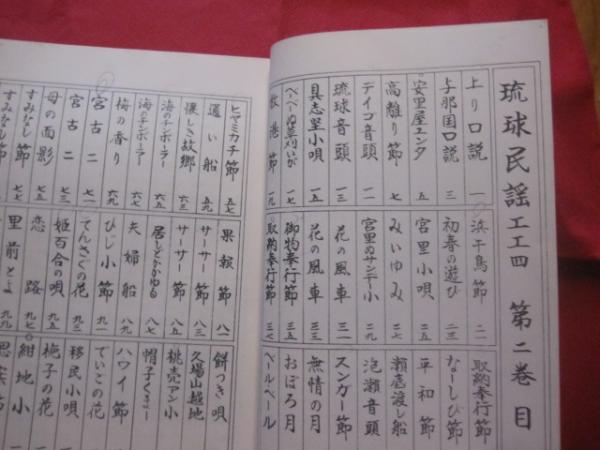 琉球民謡工工四 第二巻 目
上り口説 一
与那国口説 三
安里屋ユンタ 五
高離り節 七
デイゴ音頭 一一
琉球音頭 一三
具志堅小唄 一五
べーべーぬ草刈いが 一七
港節 一九
浜千鳥節 二一
初春の遊び 二三
宮里小唄 二五
みいゆみ 二七
宮里ぬサンニー小 二九
花の風車
花の風車
御物奉行節 三五
取納奉行節 三七
取納奉行節
なーしび節
平和節
瀬底渡し船
泡瀬音頭
スンガー節
無情の月
おぼろ月
ベールベール
ヒヤミカチ節 五七
通い船 五九
懐しき故郷 六一
海のチンボーラー
海のチンボーラー
梅の香り 六九
宮古二 七一
宮古二 七三
母の面影
すみなし節 七七
すみなし節
果報節 八一
サーサー節 八三
サーサー節 八五
居しどぅかゆる 八七
夫婦船 八九
ひじ小節 九一
てんさごの花
姫百合の唄 九五
恋路 九七
里前とよ 九九
餅つき唄
久場山越地
桃売アン小
帽子くまー
ハワイ節
でいごの花
移民小唄
梔子の花
紺地小